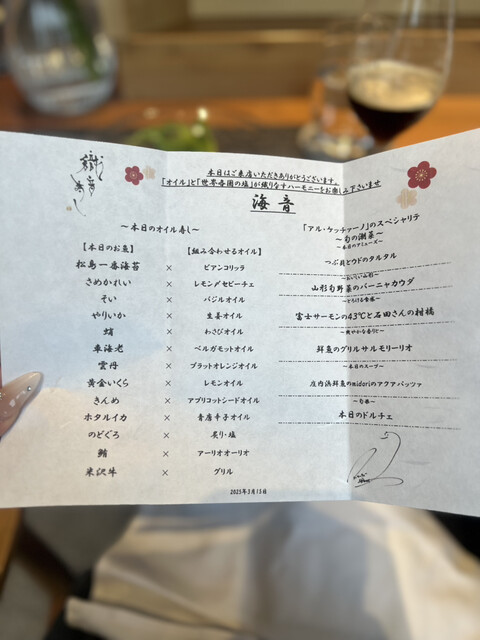 本日はご来店いただきありがとうございます。
「オイル」と「世界各国の塩」が織りなすハーモニーをお楽しみ下さいませ
海音
～本日のオイル寿し～
【本日のお魚】 【組み合わせるオイル】
松島一番海苔 × ビアンコリッラ
さめかれい × レモン〆セビーチェ
そい × バジルオイル
やりいか × 生姜オイル
蛸 × わさびオイル
車海老 × ベルガモットオイル
雲丹 × ブラッドオレンジオイル
黄金いくら × レモンオイル
きんめ × アプリコットシードオイル
ホタルイカ × 青唐辛子オイル
のどぐろ × 炙り・塩
鮪 × アーリオオーリオ
米沢牛 × グリル
「アル・ケッチァーノ」のスペシャリテ
～旬の潮菜～
～本日のアミューズ～
つぶ貝とウドのタルタル
～おいしい山形～
山形旬野菜のバーニャカウダ
～とろける食感～
富士サーモンの43℃と石田さんの柑橘
～爽やかな香りと～
鮮魚のグリルサルモリーリオ
～本日のスープ～
庄内浜鮮魚のmidoriのアクアパッツァ
～旬果～
本日のドルチェ
2025年3月13日